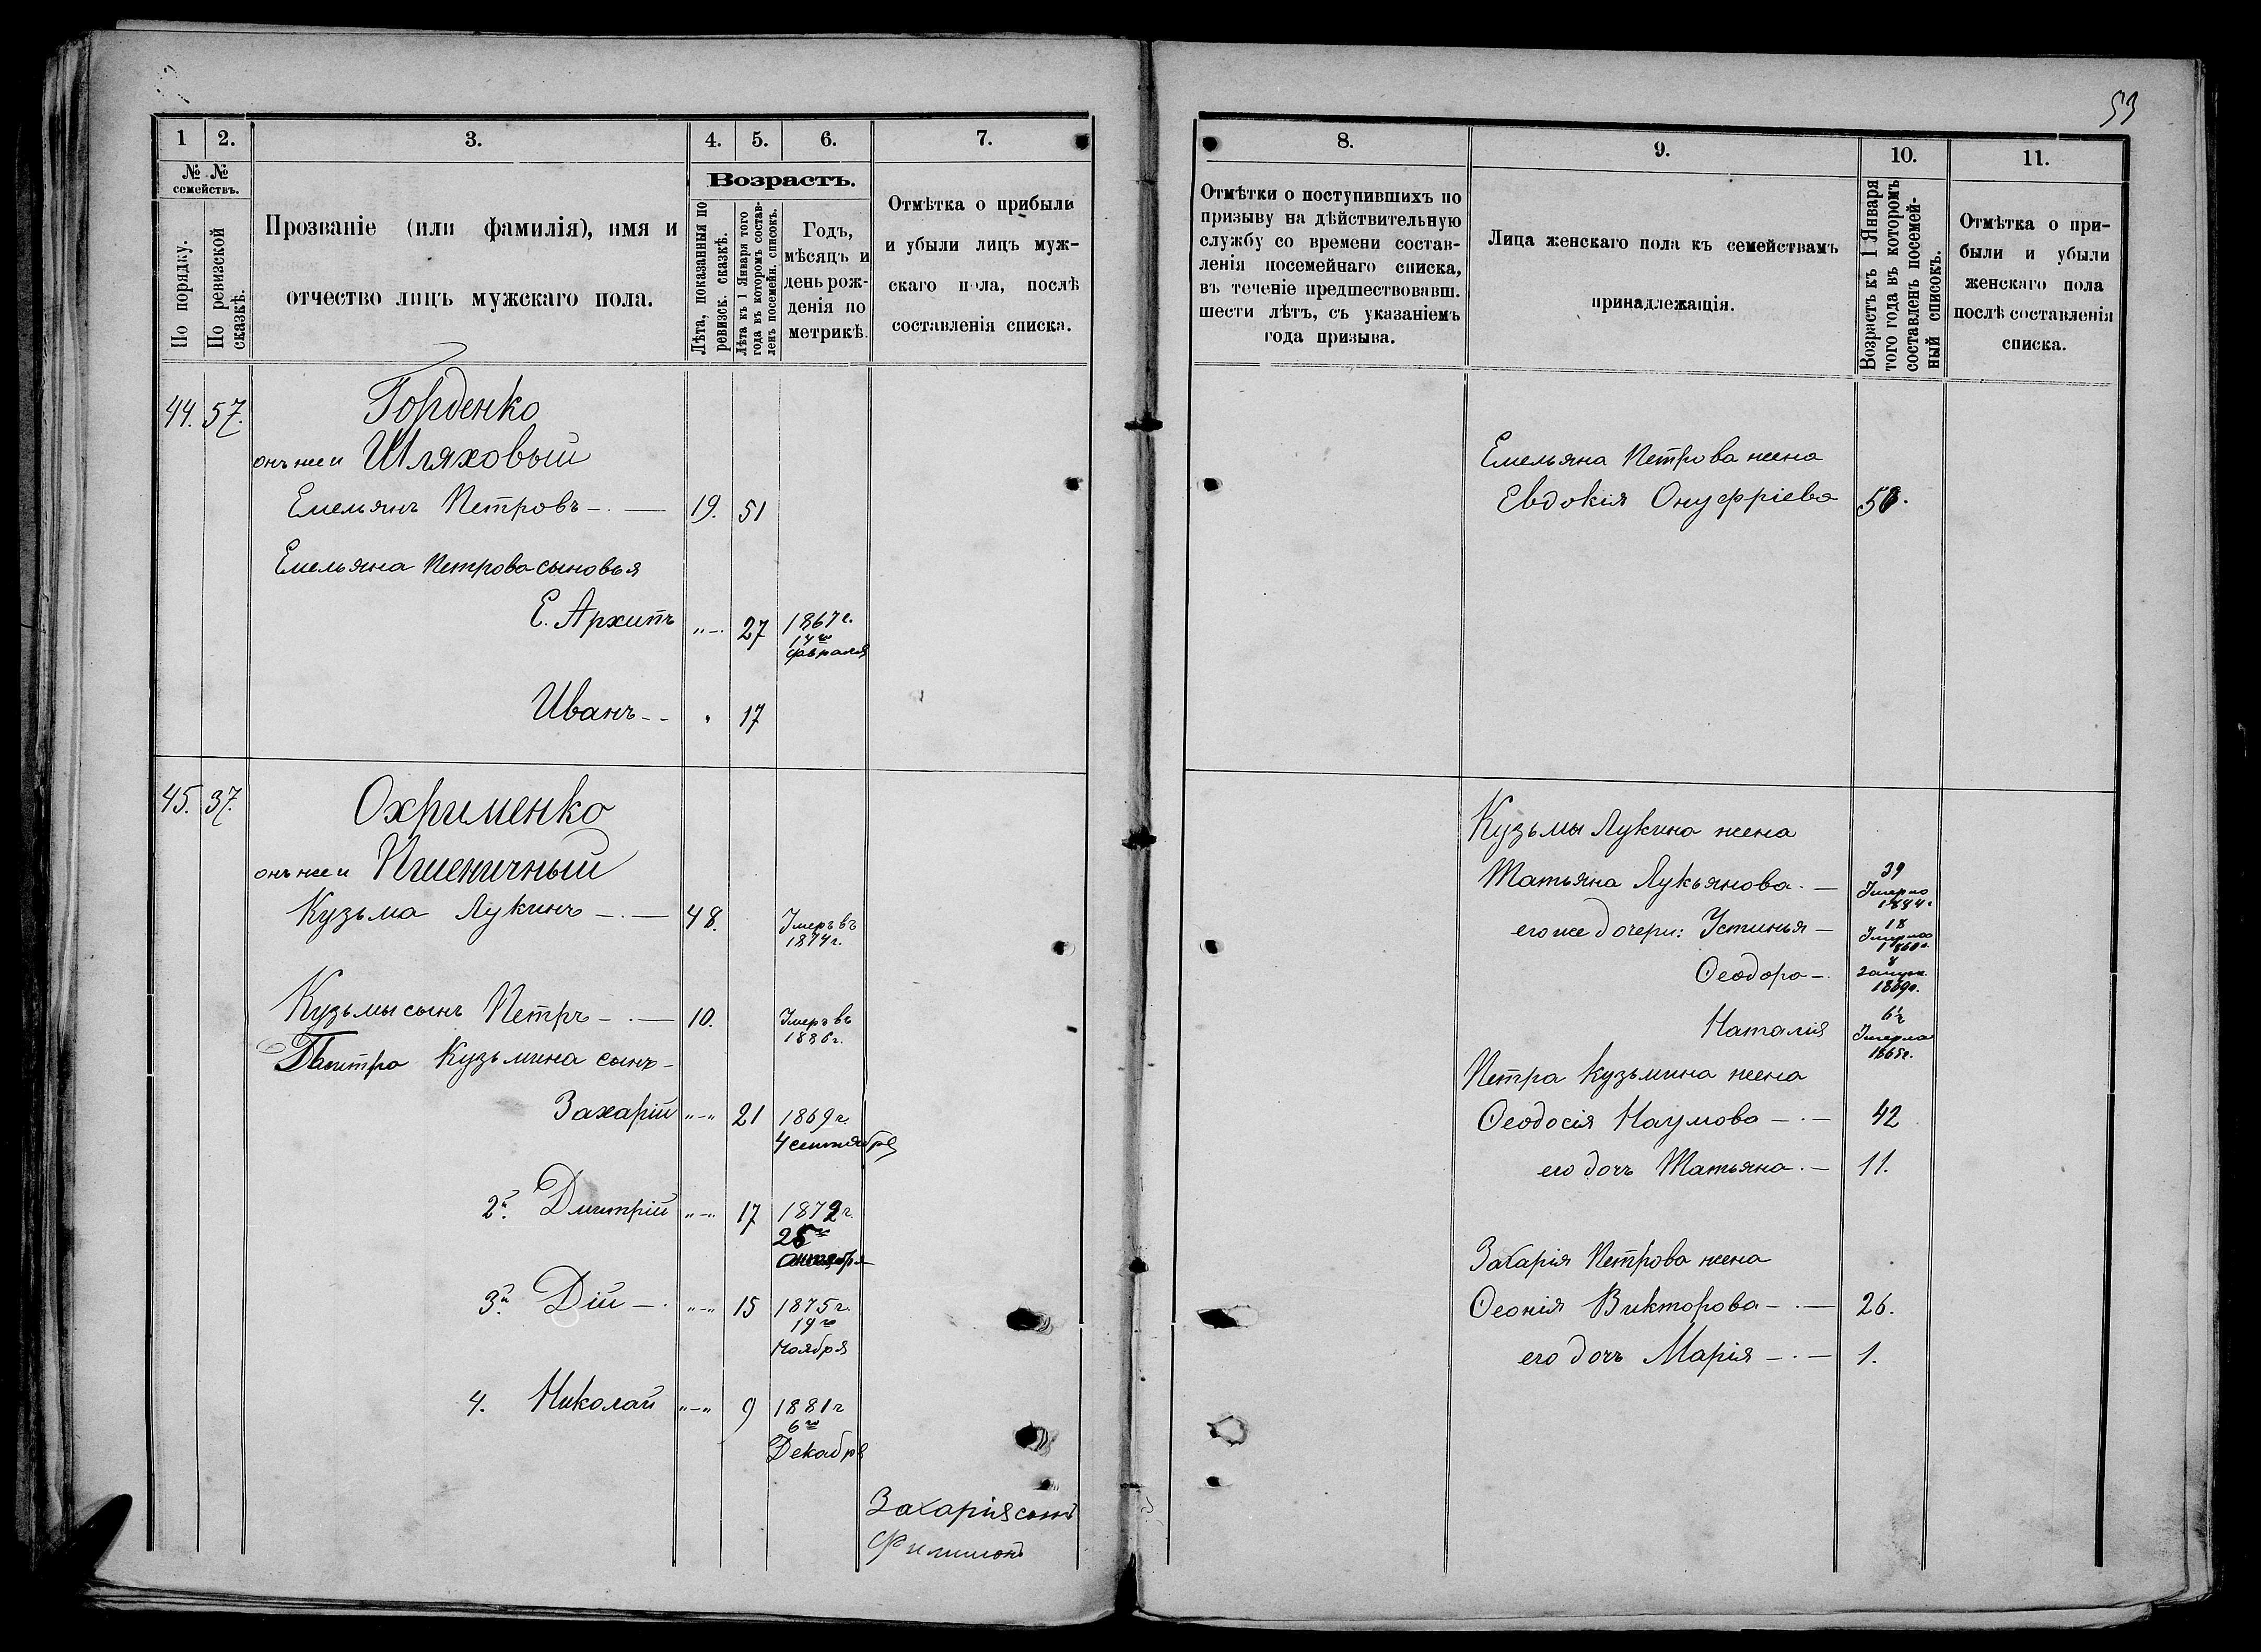 53
1 2. 3. 4. 5. 6. 7.
№ № семействъ.
По порядку.
По ревизской сказкѣ.
Прозваніе (или фамилія), имя и
отчество лицъ мужскаго пола.
Возрастъ.
Лѣта, показанныя по
ревизск. сказкѣ.
Лѣта къ 1 Января того
года въ которомъ состав-
ленъ посемейн. списокъ.
Годъ,
мѣсяцъ и
день рож-
денія по
метрикѣ.
Отмѣтка о прибыли
и убыли лицъ муж-
скаго пола, послѣ
составленія списка.
44. 57. Горденко
онъ же и Шляховый
Емельянъ Петровъ 19. 51
Емельяна Петрова сыновья
Е. Архипъ "-. 27 1867 г.
14го
февраля
Иванъ - - " 17
45. 37. Охрименко
онъ же и Пшеничный
Кузьма Лукинъ 48. Умеръ въ
1874 г.
Кузьмы сынъ Петръ 10. Умеръ въ
1886 г.
Петра Кузьмина сынъ -
Захарій "-" 21 1869 г.
4 сентября
2й. Дмитрій "-" 17 1872 г.
25го
3й. Дій "-" 15 1875 г.
19го
Ноября
4. Николай "-" 9 1881 г
6го
Декабря
Захарія сынъ
Филимонъ
8. 9. 10. 11.
Отмѣтки о поступившихъ по
призыву на дѣйствительную
службу со времени состав-
ленія посемейнаго списка,
въ теченіе предшествовавш.
шести лѣтъ, съ указаніемъ
года призыва.
Лица женскаго пола къ семействамъ
принадлежащія.
Возрастъ къ 1 Января
того года въ которомъ
составленъ посемей-
ный списокъ.
Отмѣтка о при-
были и убыли
женскаго пола
послѣ составленія
списка.
Емельяна Петрова жена
Евдокія Онуфріева
Кузьмы Лукина жена
Татьяна Лукьянова. 39
Умерла
1884 г
его же дочери: Устинья 18
Умерла
1860 г.
Ѳеодора 8
замуж.
1869 г.
Наталія 6½
Умерла
1865 г.
Петра Кузьмина жена
Ѳеодосія Наумова 42
его дочь Татьяна. 11.
Захарія Петрова жена
Ѳеонія Викторова 26.
его дочь Марія 1.